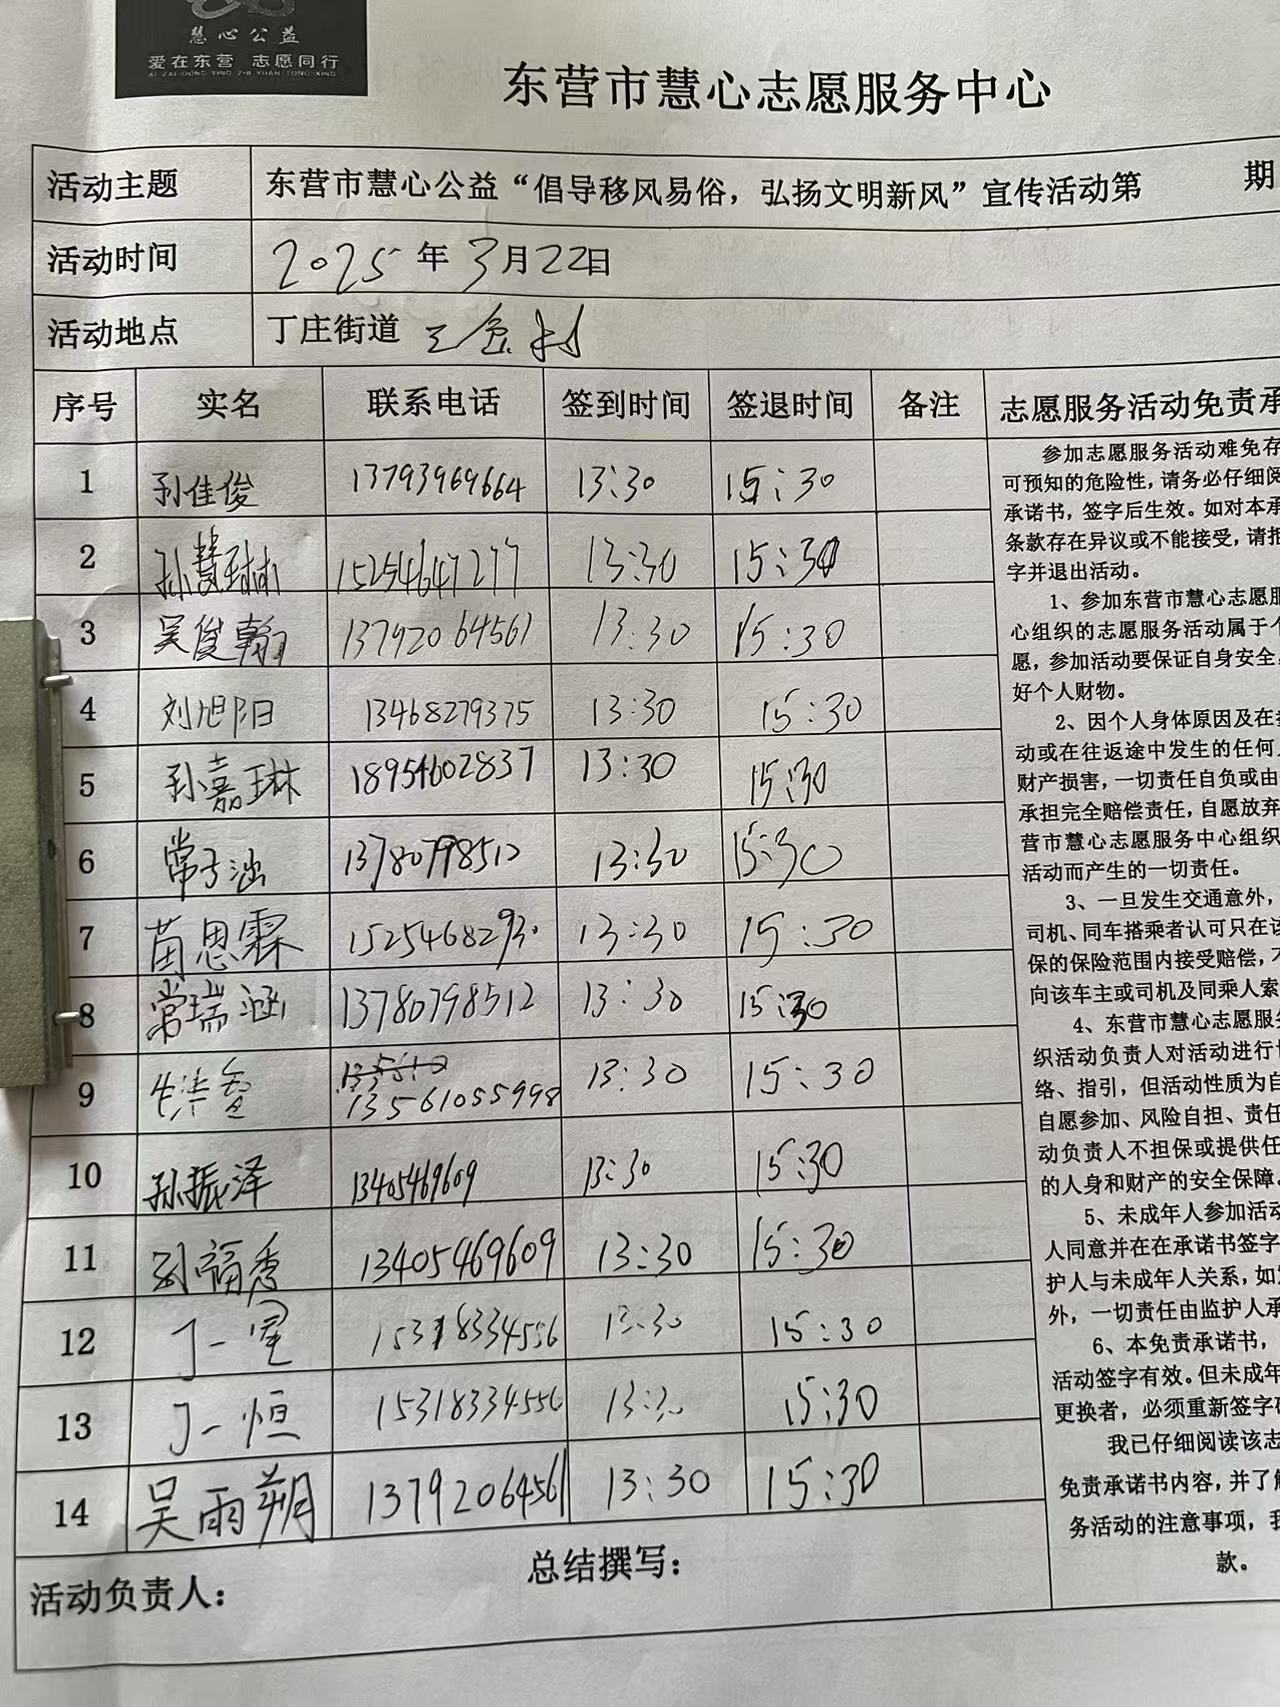 慧心公益
爱在东营 志愿同行
AI ZAI DONG YING ZHI YUAN TONG XING
东营市慧心志愿服务中心
活动主题 东营市慧心公益“倡导移风易俗，弘扬文明新风”宣传活动第 期
活动时间 2025年3月22日
活动地点 丁庄街道 王
序号 实名 联系电话 签到时间 签退时间 备注 志愿服务活动免责承
1 孙佳俊 13793969664 13:30 15:30
2 孙慧琳 15254647277 13:30 15:30
3 吴俊翰 13792064561 13:30 15:30
4 刘旭阳 13468279375 13:30 15:30
5 孙嘉琳 18954602837 13:30 15:30
6 常子涵 13780798512 13:30 15:30
7 苗思霖 15254682930 13:30 15:30
8 常瑞涵 13780798512 13:30 15:30
9 13561055998 13:30 15:30
10 孙振泽 13405469609 13:30 15:30
11 孙福秀 13405469609 13:30 15:30
12 丁一 15318334556 13:30 15:30
13 丁一恒 15318334556 13:30 15:30
14 吴雨朔 13792064561 13:30 15:30
活动负责人： 总结撰写：
参加志愿服务活动难免存
可预知的危险性，请务必仔细阅
承诺书，签字后生效。如对本承
条款存在异议或不能接受，请拒
字并退出活动。
1、参加东营市慧心志愿服
心组织的志愿服务活动属于个
愿，参加活动要保证自身安全，
好个人财物。
2、因个人身体原因及在参
动或在往返途中发生的任何人
财产损害，一切责任自负或由
承担完全赔偿责任，自愿放弃
营市慧心志愿服务中心组织
活动而产生的一切责任。
3、一旦发生交通意外，
司机、同车搭乘者认可只在该
保的保险范围内接受赔偿，不
向该车主或司机及同乘人索
4、东营市慧心志愿服务
织活动负责人对活动进行
络、指引，但活动性质为自
自愿参加、风险自担、责任
动负责人不担保或提供任
的人身和财产的安全保障。
5、未成年人参加活动
人同意并在在承诺书签字
护人与未成年人关系，如
外，一切责任由监护人承
6、本免责承诺书，
活动签字有效。但未成年
更换者，必须重新签字
我已仔细阅读该志
免责承诺书内容，并了解
务活动的注意事项，我
款。